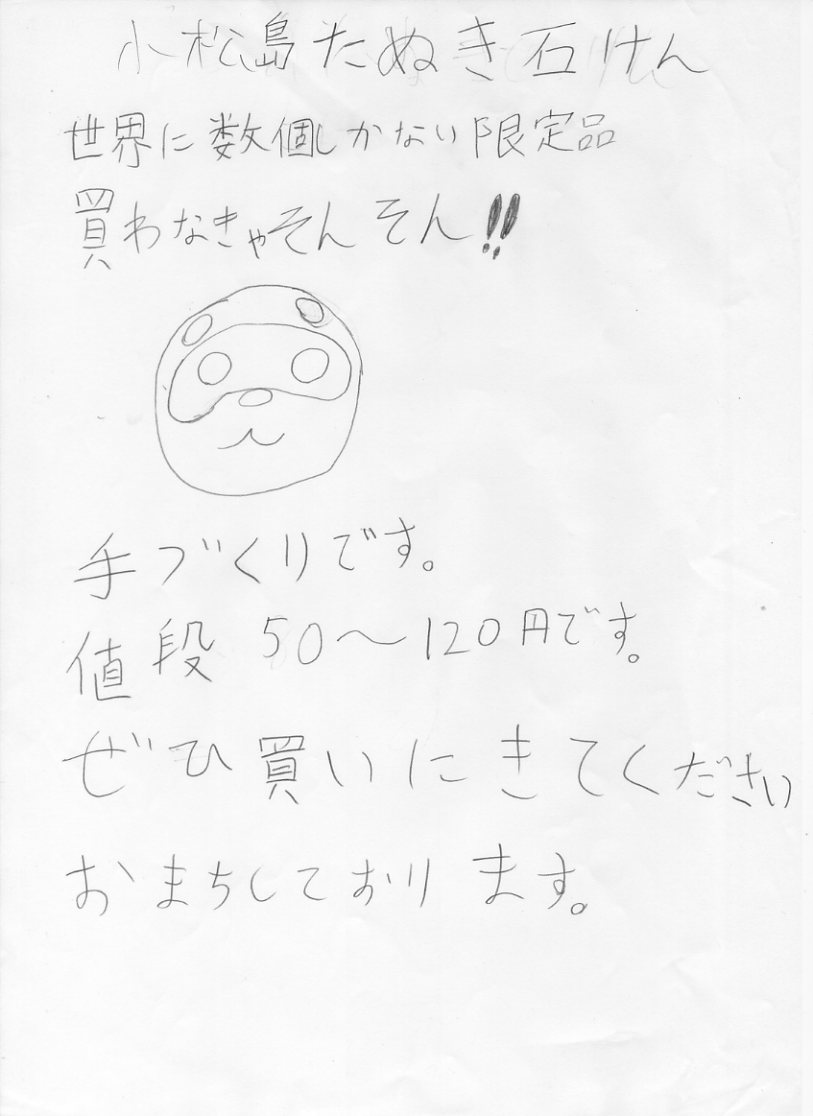 小松島たぬき石けん
世界に数個しかない限定品
買わなきゃそんそん!!
手づくりです。
値段 50〜120円です。
ぜひ買いにきてください
おまちしております。